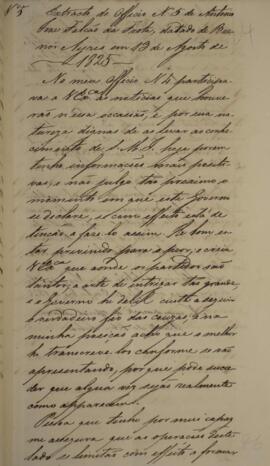 Extracto do Officio N. 5 de Antonio
Jose Falcão da Frota, datado de Bue-
nos Ayres em 13 de Agosto de
1825
No meu Officio N. 4 participa-
va a VEx.ca as noticias que houve-
rão nessa occasião, e por sua na-
tureza dignas de as levar ao conhe-
cimento de S. M. I. hoje porem
tenho informações mais positi-
vas, e não julgo tão proximo o
momento em que este Governo
se declare, se com effeito está de-
cidido a faze-lo assim. He bom en-
tar prevenido para o peor, e creia
VEx.ca que aonde os partidos são
tantos, a arte de intrigar tão grande,
e o Governo tão debil custa a seguir
o verdadeiro fio das couzas, e na
minha posição acho que o melhor
he transcreve-las conforme se vão
apresentando, por que pode succe-
der que alguma vez sejão realmente
como apparecem.
Pessoa que tenho por mui capaz
me assegura que as operações deste
lado se limitão com effeito a formar